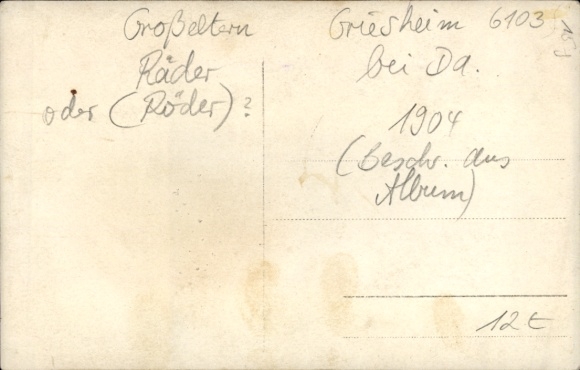 Großeltern
Räder
oder (Röder)?
Griesheim 6103
bei Da.
1904
(Beschr. aus
Album)
12t